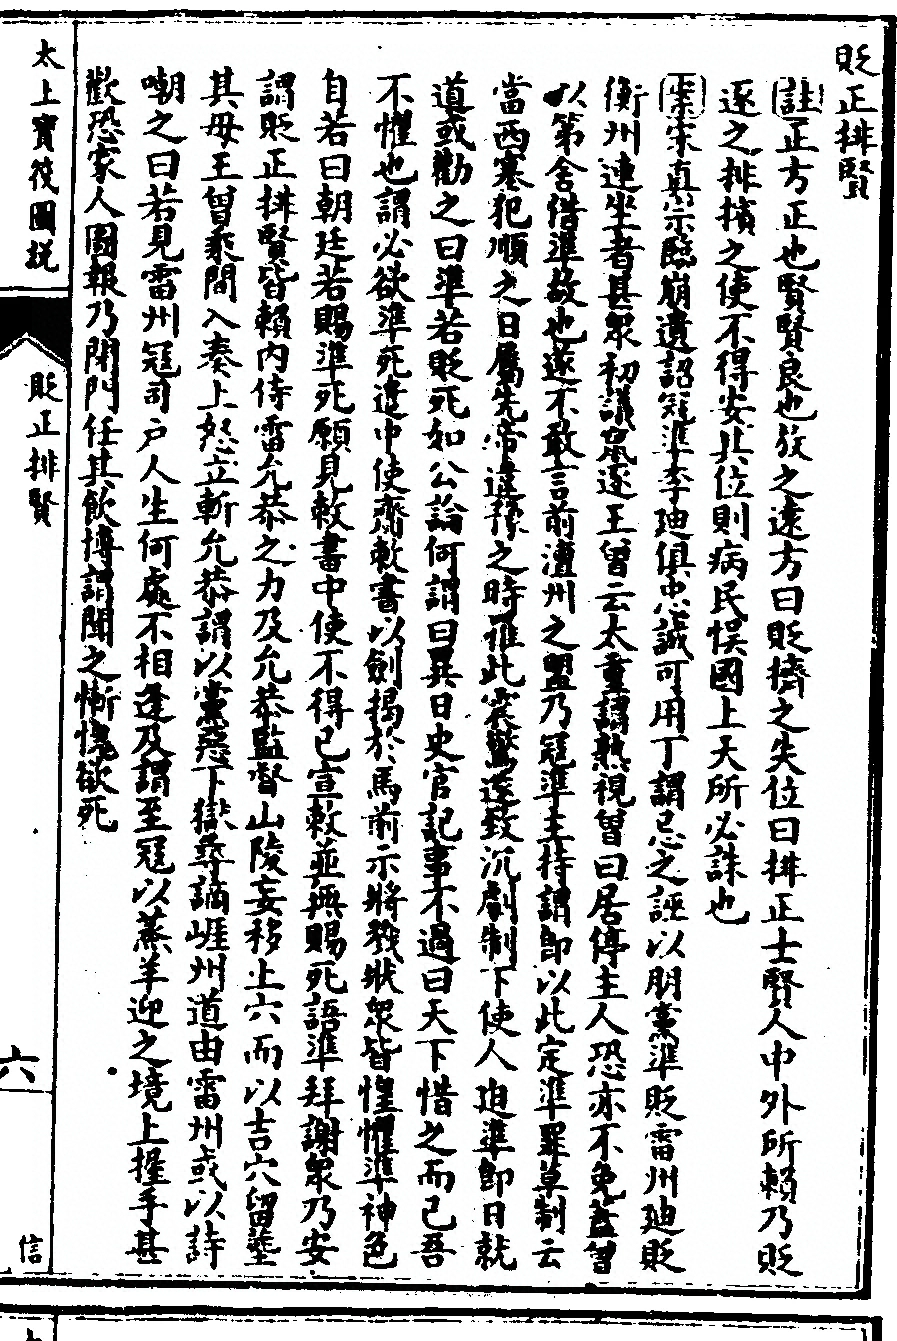 貶正排賢
註正方正也賢賢良也放之遠方曰貶擠之失位曰排正士賢人中外所賴乃貶
逐之排擯之使不得安其位則病民悞國上天所必誅也
案宋真宗臨崩遺詔冦準李廸俱忠誠可用丁謂忌之誣以朋黨準貶雷州廸貶
衡州連坐者甚衆初議竄逐王曾云太重謂熟視曾曰居停主人恐亦不免蓋曾
以第舍借準故也遂不敢言前澶州之盟乃冦準主持謂即以此定準罪草制云
當西塞犯順之日屬先帝違豫之時罹此震驚遂致沉劇制下使人廹準即日就
道或勸之曰準若貶死如公論何謂曰異日史官記事不過曰天下惜之而已吾
不懼也謂必欲準死遣中使齎敕書以劍揭於馬前示將戮狀衆皆惶懼準神色
自若曰朝廷若賜準死願見敕書中使不得已宣敕並無賜死語準拜謝衆乃安
謂貶正排賢皆賴內侍雷允恭之力及允恭監督山陵妄移上穴而以吉穴留塟
其母王曾乘間入奏上怒立斬允恭謂以黨惡下獄尋謫崖州道由雷州或以詩
嘲之曰若見雷州冦司戶人生何處不相逢及謂至冦以蒸羊迎之境上握手甚
歡恐家人圖報乃閉門任其飲博謂聞之慚愧欲死
太上寶筏圖説
貶正排賢
六
信